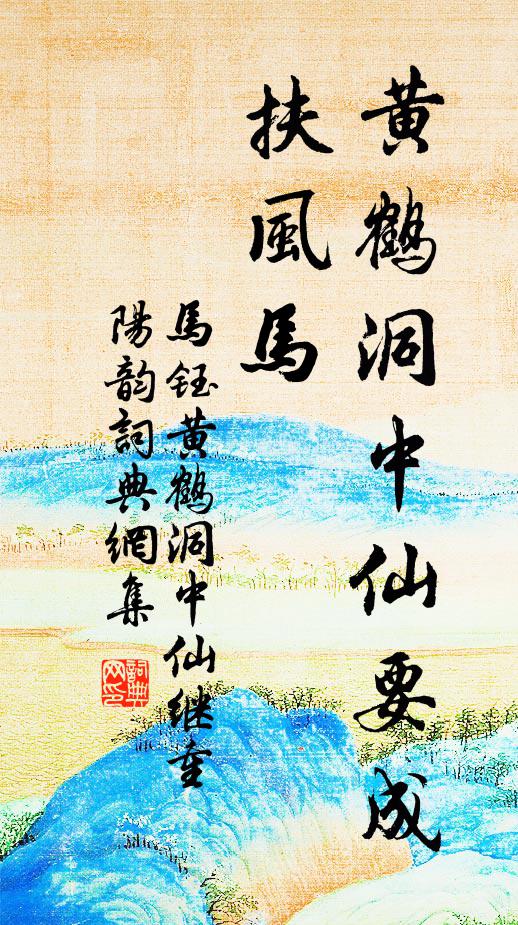 黄鶴洞中仙要成
扶風馬
馬鈺黄鶴洞中仙继重
陽韵詞典網集
詞典网印